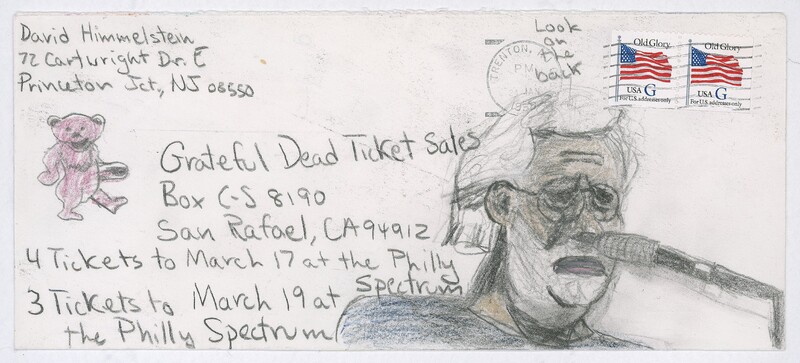 David Himmelstein
72 Cartwright Dr. E
Princeton Jct., NJ 08550
Look
on
the
back
TRENTON, NJ
PM
Old Glory
USA G
For U.S. addresses only
Old Glory
USA G
For U.S. addresses only
Grateful Dead Ticket Sales
Box C-S 8190
San Rafael, CA 94912
4 Tickets to March 17 at the Philly
Spectrum
3 Tickets to March 19 at
the Philly Spectrum